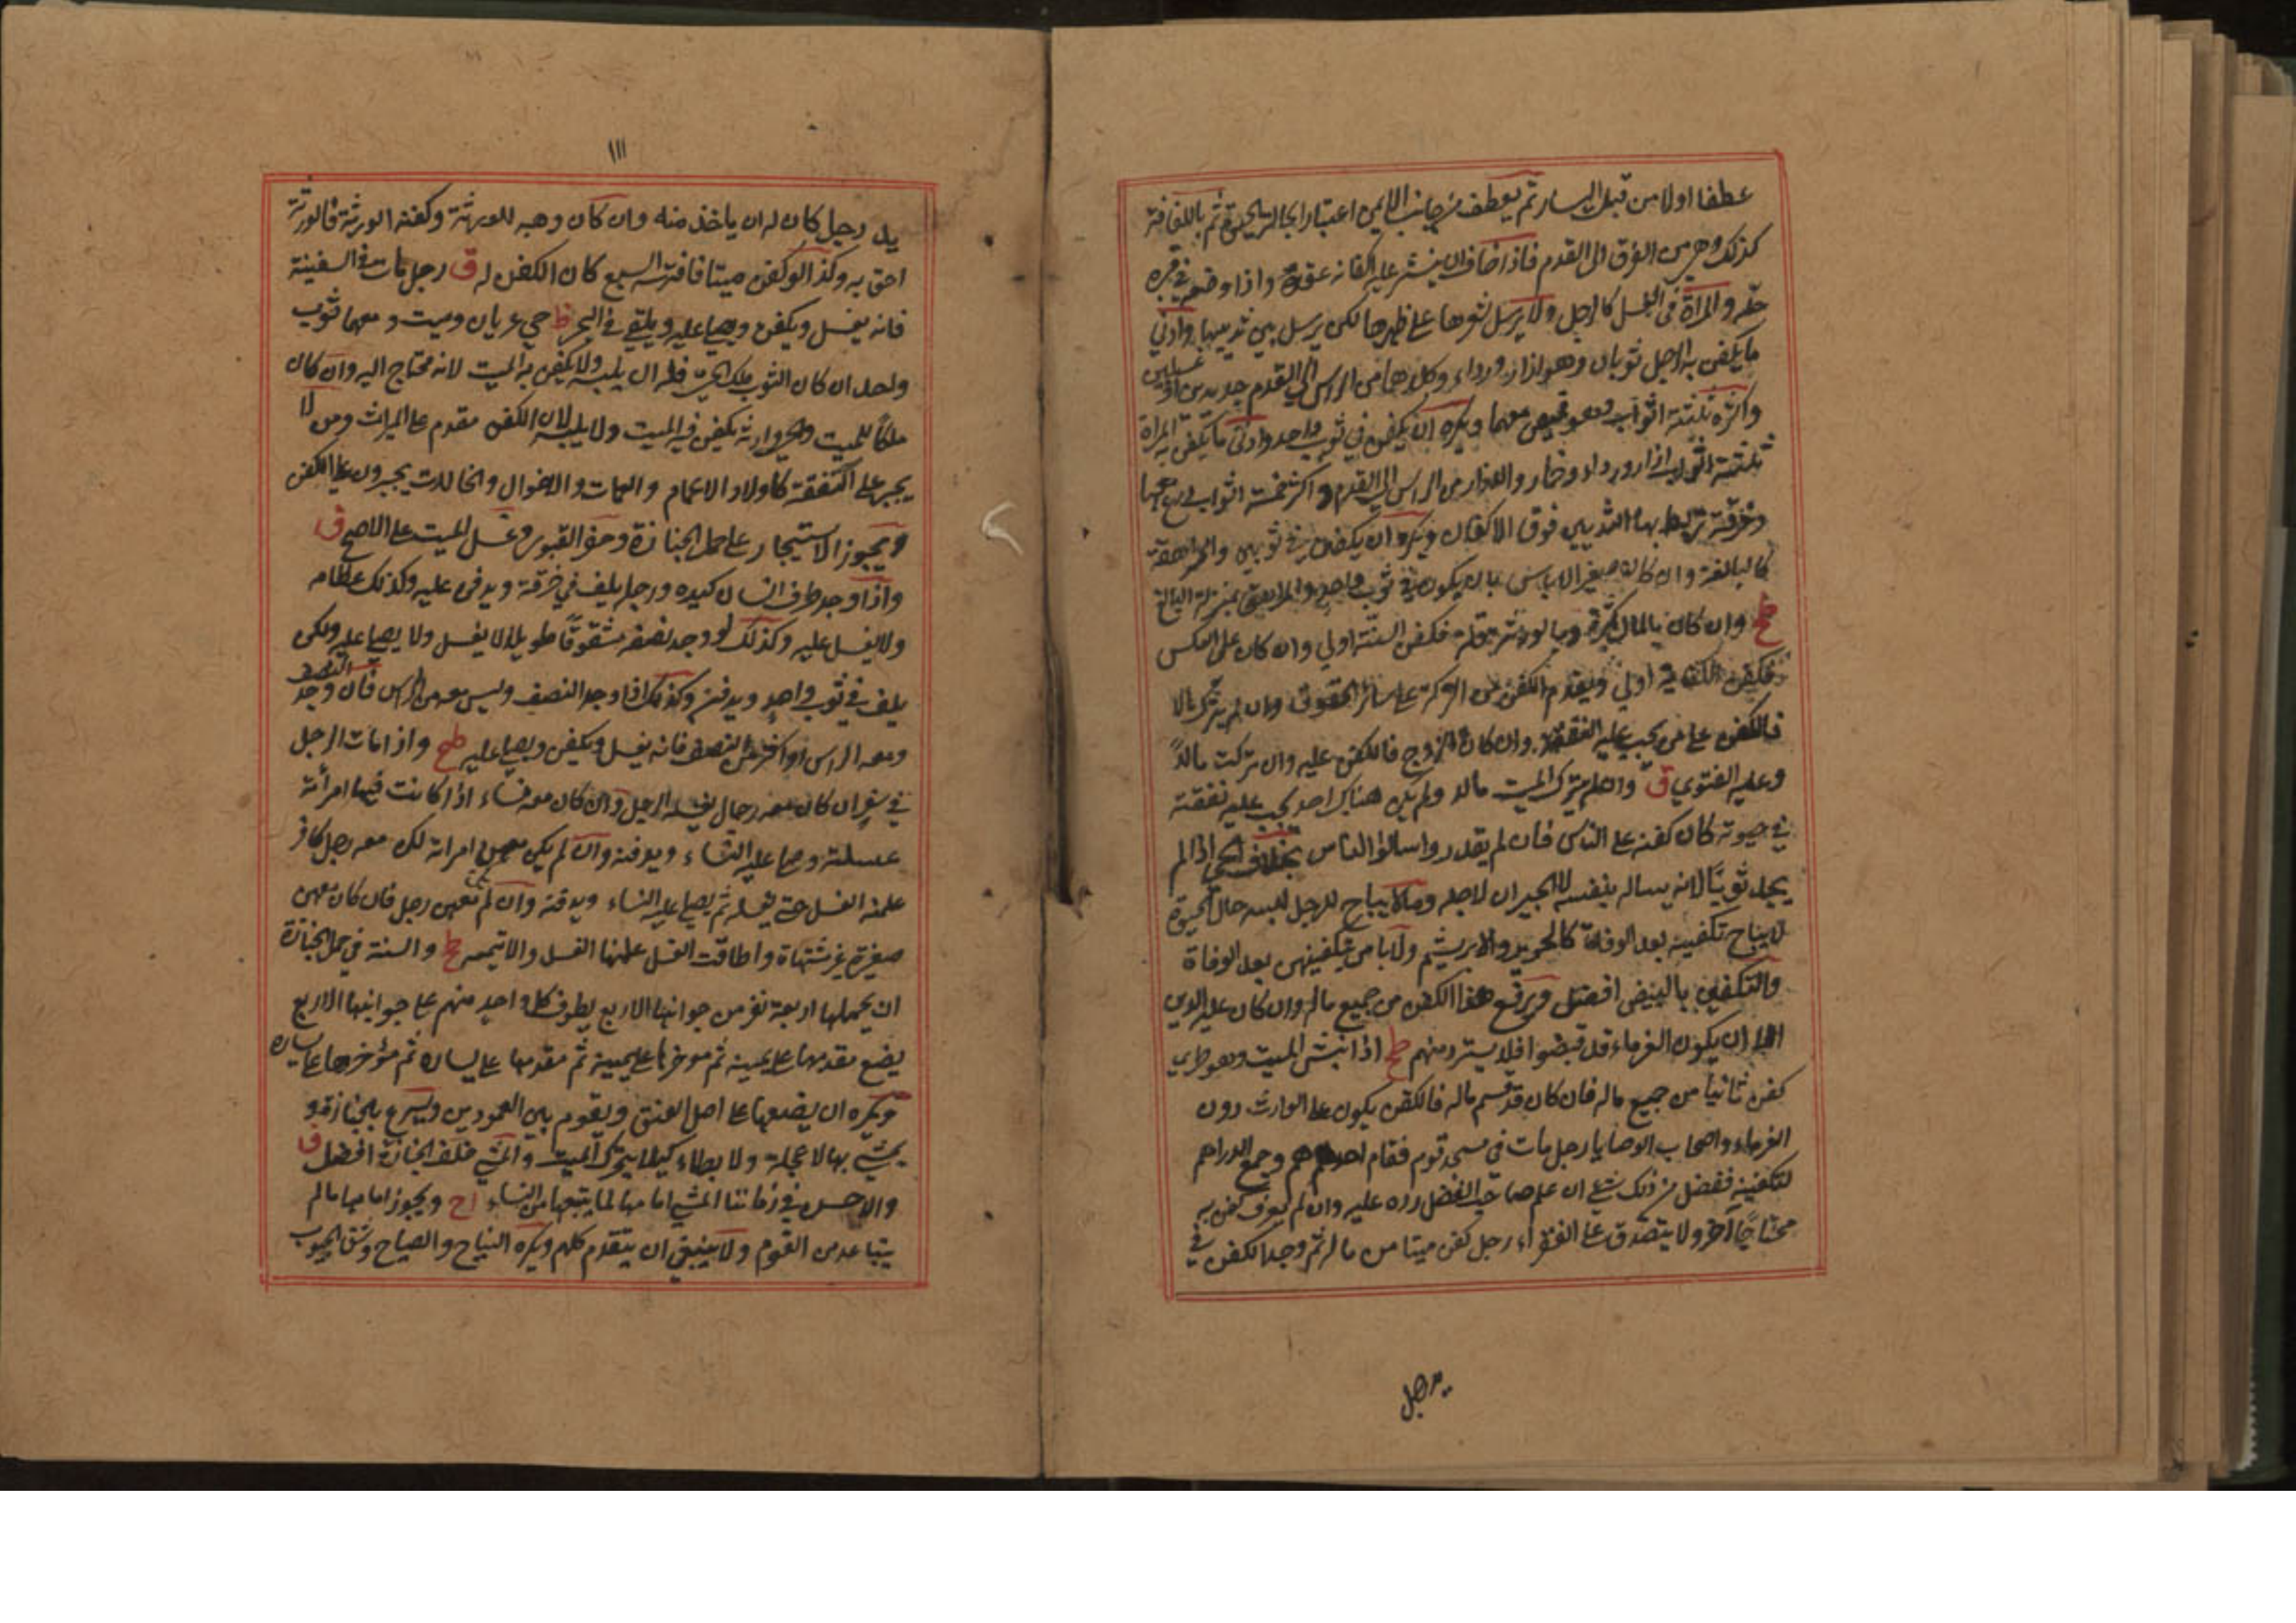 عطفا اولا من قبل اليسار ثم يعطف من جانب الايمن اعتبارا بحال الحيوة ثم باللفافة
كذلك وهى من الفرق الى القدم فاذا خاف ان ينتشر عليه اكفانه عقده واذا وضعه في قبره
حله والمراة في الغسل كالرجل ولا يرسل شعرها على ظهرها لكن يرسل بين ثدييها وادنى
ما يكفن به الرجل ثوبان وهو ازار ورداء وكلاهما من الراس الى القدم جديدين او غسيلين
واكثره ثلثة اثواب وهو قميص معهما ويكره ان يكفن في ثوب واحد وادنى ما يكفن به المراة
ثلثة اثواب ازار ورداء وخمار والازار من الراس الى القدم واكثر خمسة اثواب درع معها
وخرقة تربط بها الثديين فوق الاكفان ويكره ان يكفن في ثوبين والمراهقة
كالبالغة وان كان صغيرا لا باس بان يكون في ثوب واحد والمراهق بمنزلة البالغ
وان كان بالمال كثرة وبالورثة قلة فكفن السنة اولى وان كان على العكس
فكفن الكفاية اولى ويقدم الكفن من التركة على سائر الحقوق وان لم يترك مالا
فالكفن على من يجب عليه النفقة وان كان الزوج فالكفن عليه وان تركت مالا
وعليه الفتوى ق وان لم يترك الميت مالا ولم يكن هناك احد يجب عليه نفقته
في حيوته كان كفنه على الناس فان لم يقدروا سالوا الناس بخلاف الحي اذا لم
يجد ثوبا لانه يساله بنفسه لا يجبران لاجله وما لا يباح للرجل لبسه حال الحيوة
لا يباح تكفينه بعد الوفاة كالحرير والابريشم ولا باس بتكفينهن بعد الوفاة
والتكفين بالبيض افضل ويرفع هذا الكفن من جميع ماله وان كان عليه الدين
الا ان يكون الغرماء قد قبضوا فلا يسترد منهم اذا نبش الميت وهو طري
كفن ثانيا من جميع ماله فان كان قد قسم ماله فالكفن يكون على الوارث دون
الغرماء واصحاب الوصايا رجل مات في مسجد قوم فقام احدهم وجمع الدراهم
لتكفينه ففضل من ذلك شئ ان علم صاحب الفضل رده عليه وان لم يعرف كفن به
محتاجا آخر ولا يتصدق على الفقراء رجل كفن ميتا من ماله ثم وجد الكفن في
١١١
يد رجل كان له ان ياخذ منه وان كان وهبه للورثة وكفنه الورثة فالورثة
احق به وكذا لو كفن ميتا فافترسه السبع كان الكفن له ق رجل مات في السفينة
فانه يغسل ويكفن ويصلى عليه ويلقى في البحر ظ حي عريان وميت ومعهما ثوب
واحد ان كان الثوب ملك الحي فله ان يلبسه ولا يكفن به الميت لانه محتاج اليه وان كان
ملكا للميت والحي وارثه يكفن فيه الميت ولا يلبسه لان الكفن مقدم على الميراث ومن لا
يجبر على النفقة كاولاد الاعمام والعمات والاخوال والخالات يجبرون على الكفن
ويجوز الاستيجار على حمل الجنازة وحفر القبور وغسل الميت على الاصح ق
واذا وجد طرف انسان كيده ورجله يلف في خرقة ويدفن عليه وكذلك عظامه
ولا يغسل عليه وكذلك لو وجد نصفه مشقوقا طويلا لا يغسل ولا يصلى عليه ولكن
يلف في ثوب واحد ويدفن وكذلك اذا وجد النصف وليس معه الراس فان وجد النصف
ومعه الراس او اكثر من النصف فانه يغسل ويكفن ويصلى عليه واذا مات الرجل
في سفر ان كان معه رجال يغسله الرجل وان كان معه نساء اذا كانت فيها امراته
غسلته وصلى عليه النساء ويدفنه وان لم يكن معهن امراته لكن معه رجل كافر
علمنه الغسل حتى يغسله ثم يصلى عليه النساء ويدفنه وان لم يكن معهن رجل فان كان معهن
صغيرة غير مشتهاة واطاقت الغسل علمنها الغسل والا تيمم والسنة في حمل الجنازة
ان يحملها اربعة نفر من جوانبها الاربع يطوف كل واحد منهم على جوانبها الاربع
يضع مقدمها على يمينه ثم موخرها على يمينه ثم مقدمها على يساره ثم مؤخرها على يساره
ويكره ان يضعها على اصل العنق ويقوم بين العمودين ويسرع بالجنازة و
يمشي بها لا عجلة ولا بطاء كيلا يتحرك الميت والمشي خلف الجنازة افضل ق
والاحسن في زماننا المشي امامها لما يتبعها من النساء اح ويجوز امامها ما لم
يتباعد من القوم ولا ينبغي ان يتقدم كلهم ويكره النياح والصياح وشق الجيوب